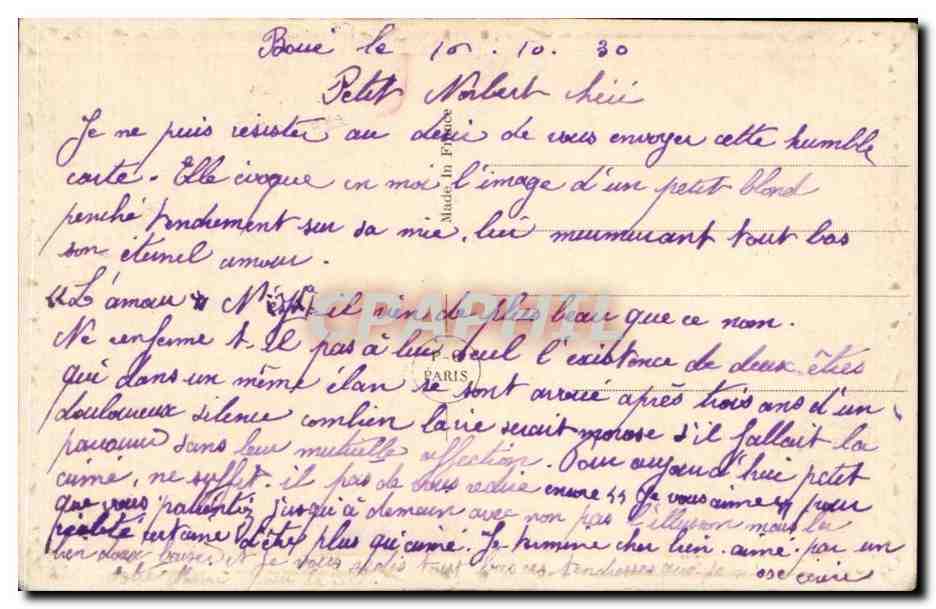 Boué le 10.10.30
Petit Norbert chéri
Je ne puis résister au désir de vous envoyer cette humble
carte. Elle évoque en moi l'image d'un petit blond
penché tendrement sur sa mie, lui murmurant tout bas
son éternel amour.
"L'amour" N'est-il rien de plus beau que ce nom.
Ne renferme t-il pas à lui seul l'existence de deux êtres
qui dans un même élan se sont avoué après trois ans d'un
douloureux silence combien la vie serait morose s'il fallait la
parcourir sans leur mutuelle affection. Pour aujourd'hui petit
aimé, ne suffit-il pas de vous redire encore "Je vous aime" pour
que vous patientiez jusqu'à demain avec non pas l'illusion mais la
réalité certaine d'être plus qu'aimé. Je termine cher bien-aimé par un
bien doux baiser et je vous tout bas ces tendresses que je
ose écrire
Made in France
P-C
PARIS
CPAPHIL